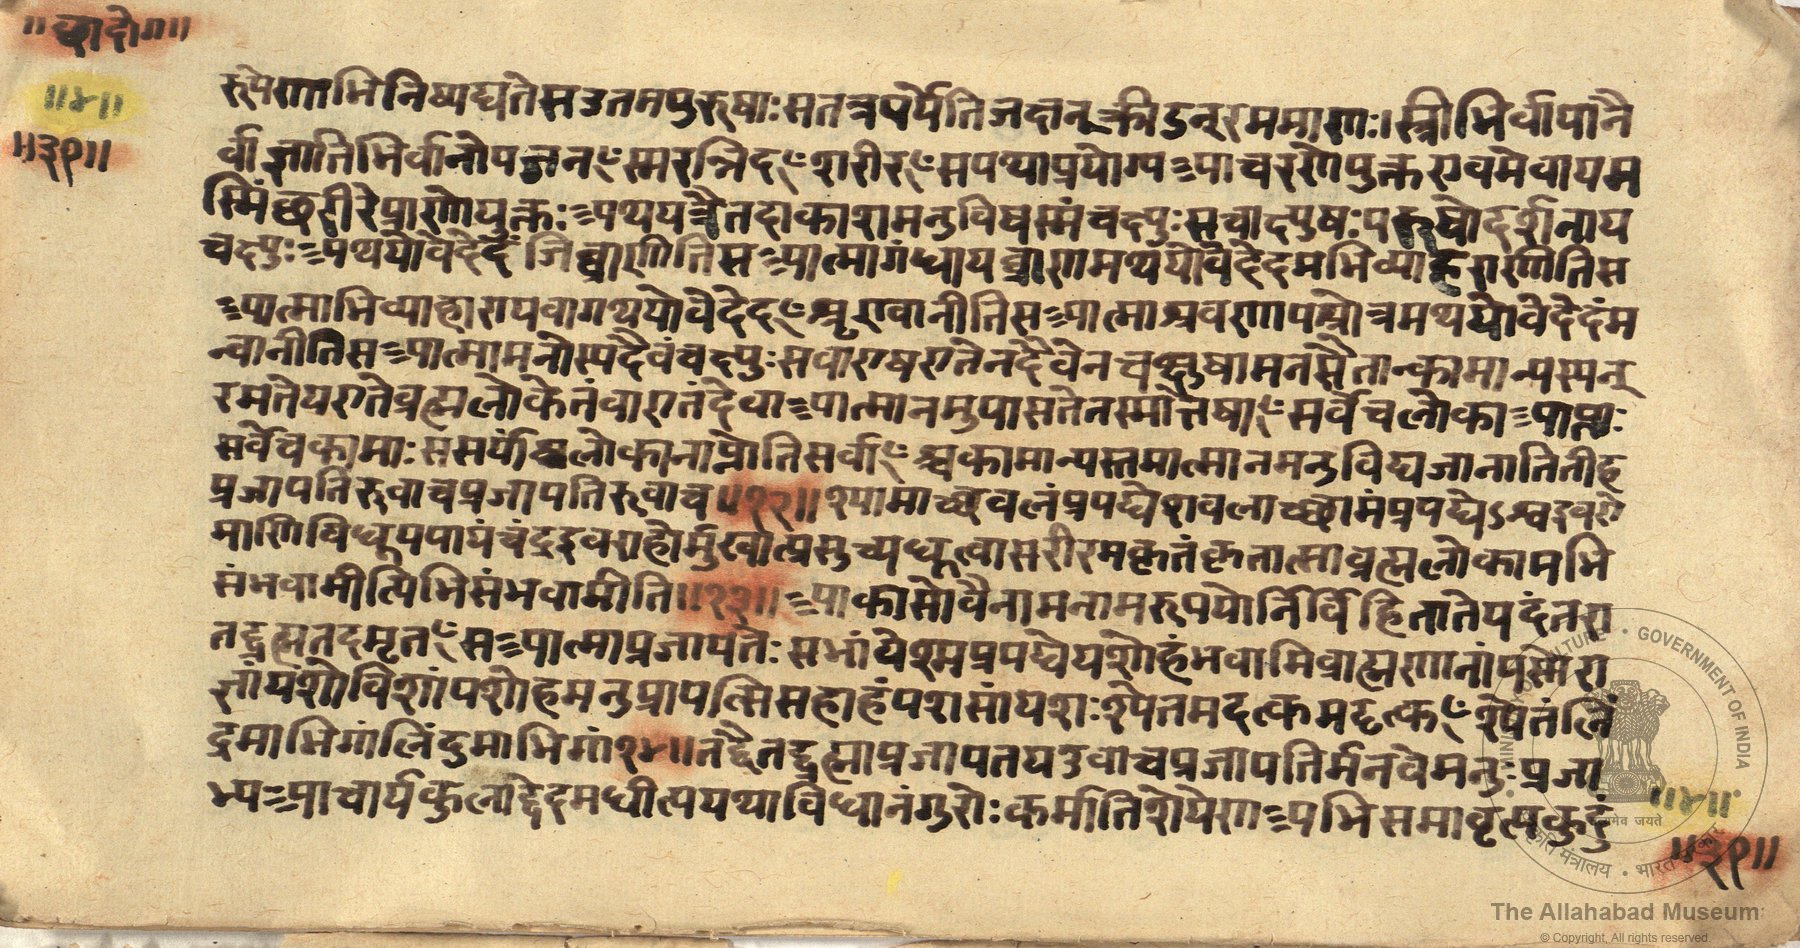 ॥छादोग॥
॥४॥
॥३९॥
रुपेणाभिनिष्पद्यतेसउतमपुरुषाःसतत्रपर्येतिजक्षन्क्रीडन्रममाणः।स्त्रीभिर्वापानै
र्वाज्ञातिभिर्वानोपजनꣳस्मरन्निदꣳशरीरꣳसपथाप्रयोग्यआचरणेयुक्तएवमेवायम
स्मिंछरीरेप्राणेयुक्तःअथयत्रैतदाकाशमनुविषस्मंचक्षुःसचाक्षुषःपरूषोदर्शनाय
चक्षुःअथयोवेदेदंजिघ्राणितिसआत्मागंधायघ्राणमथयोवेदेदमभिव्याहराणितिस
आत्माभिव्याहारायवागथयोवेदेदꣳश्रृणवानीतिसआत्माश्रवणायश्रोत्रमथयोवेदेदंम
न्वानीतिसआत्मामनोस्यदैवंचक्षुःसवाएषएतेनदैवेनचक्षुषामनसैतान्कामान्पस्यन्
रमतेयएतेब्रह्मलोकेतंवाएतंदेवाआत्मानमुपासतेतस्मात्तेषाꣳसर्वेचलोकाआप्ताः
सर्वेचकामाःससर्वांश्चलोकानाप्नोतिसर्वाꣳश्चकामान्यस्तमात्मानमनुविद्यजानातितीह
प्रजापतिरुवाचप्रजापतिरुवाच॥१२॥श्यामाच्छवलंप्रपद्येशवलाच्छ्यामंप्रपद्येऽश्वइवरो
माणिविधूयपापंचंद्रइवराहोर्मुखात्प्रमुच्यधूत्वासरीरमकृतंकृतात्माब्रह्मलोकामभि
संभवामीत्यिभिसंभवामीति॥१३॥आकासोवैनामनामरुपयोर्निर्विहितातेयदंतरा
तद्ब्रह्मतदमृतꣳसआत्माप्रजापतेःसभांवेश्मप्रपद्येयशोहंभवामिब्राह्मणानांयसोरा
ज्ञांयंशोविशांयशोहमनुप्रापत्सिसहाहंयशसांयशःश्येतमदत्कमदत्कꣳश्येतंलिं
द्रमाभिगांलिंदुमाभिगां१४॥तद्दैतद्ब्रह्माप्रजापतयउवाचप्रजापतिर्मनवेमनुःप्रजा
भ्यआचार्यकुलाद्वेदमधीत्ययथाविधानंगुरोःकर्मातिशेषेणअभिसमावृत्यकुटुं
॥४॥
॥३९॥
The Allahabad Museum
© Copyright, All rights reserved.
GOVERNMENT OF INDIA